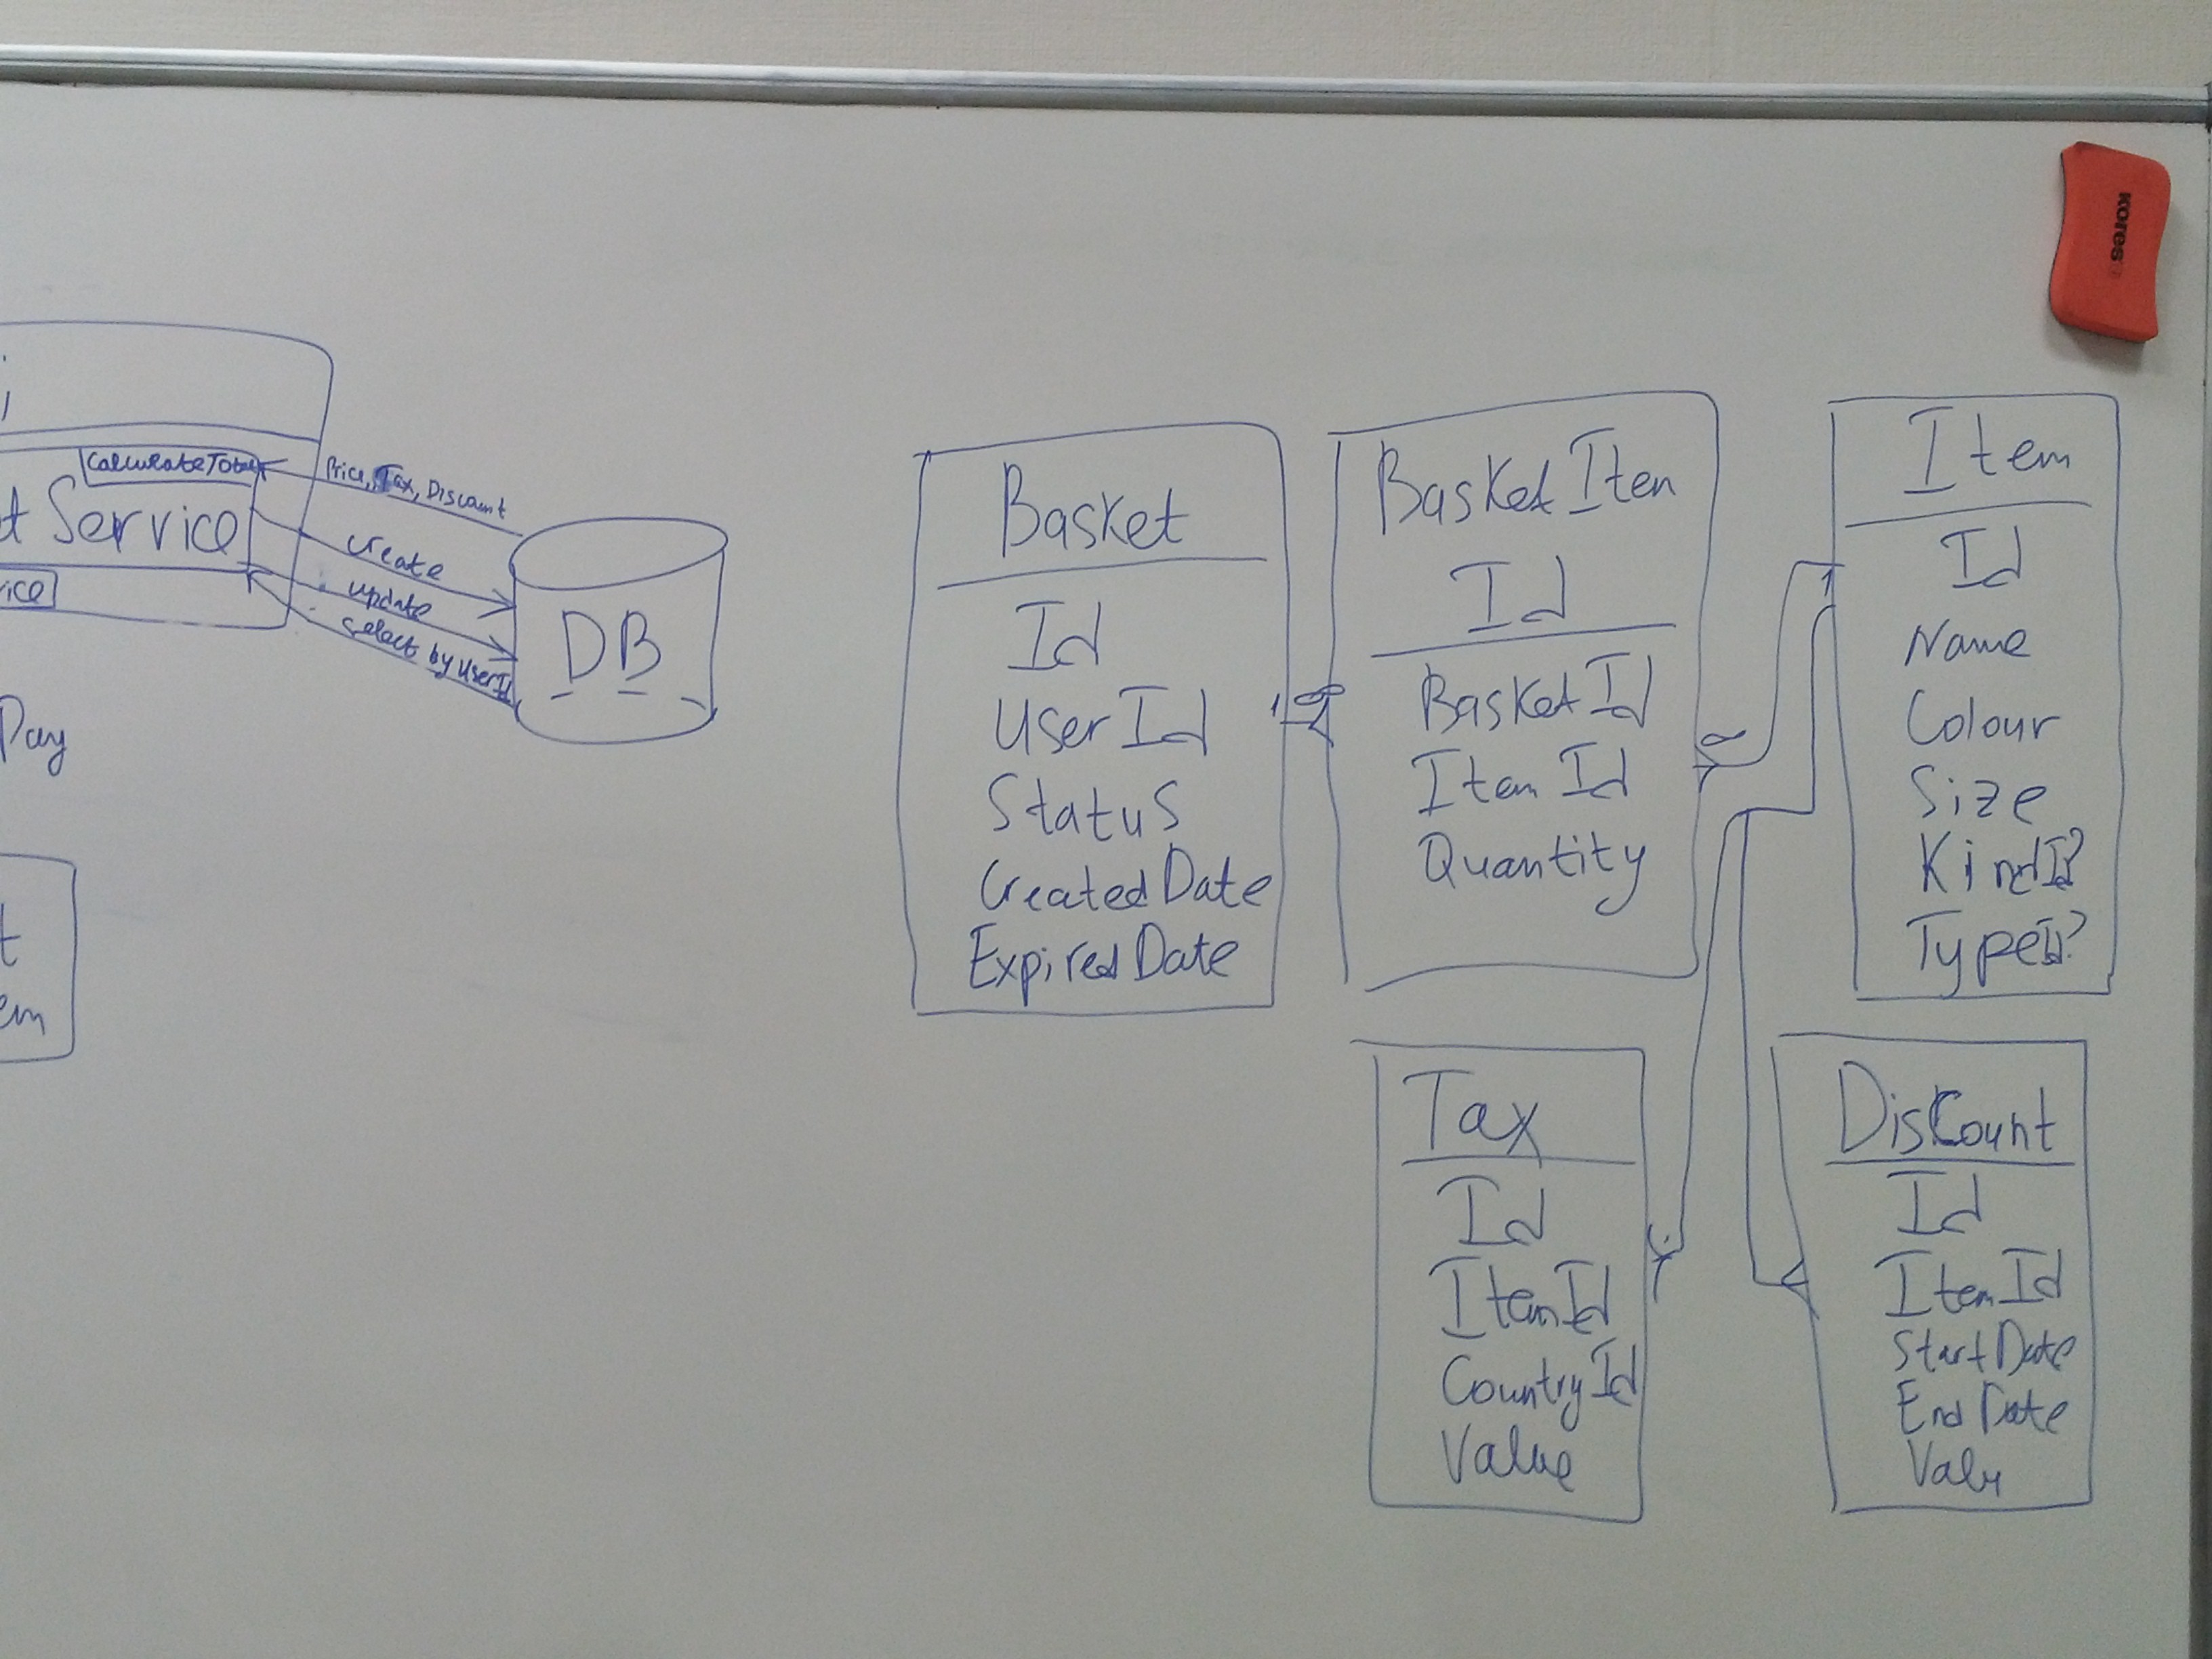 CalculateTotal
t Service
vice
Price, Tax, Discount
create
update
select by UserId
DB
Pay
t
em
Basket
Id
UserId
Status
CreatedDate
ExpiredDate
1
∞
BasketItem
Id
BasketId
ItemId
Quantity
∞
1
Item
Id
Name
Colour
Size
KindId?
TypeId?
Tax
Id
ItemId
CountryId
Value
DisCount
Id
ItemId
StartDate
EndDate
Valu
kores